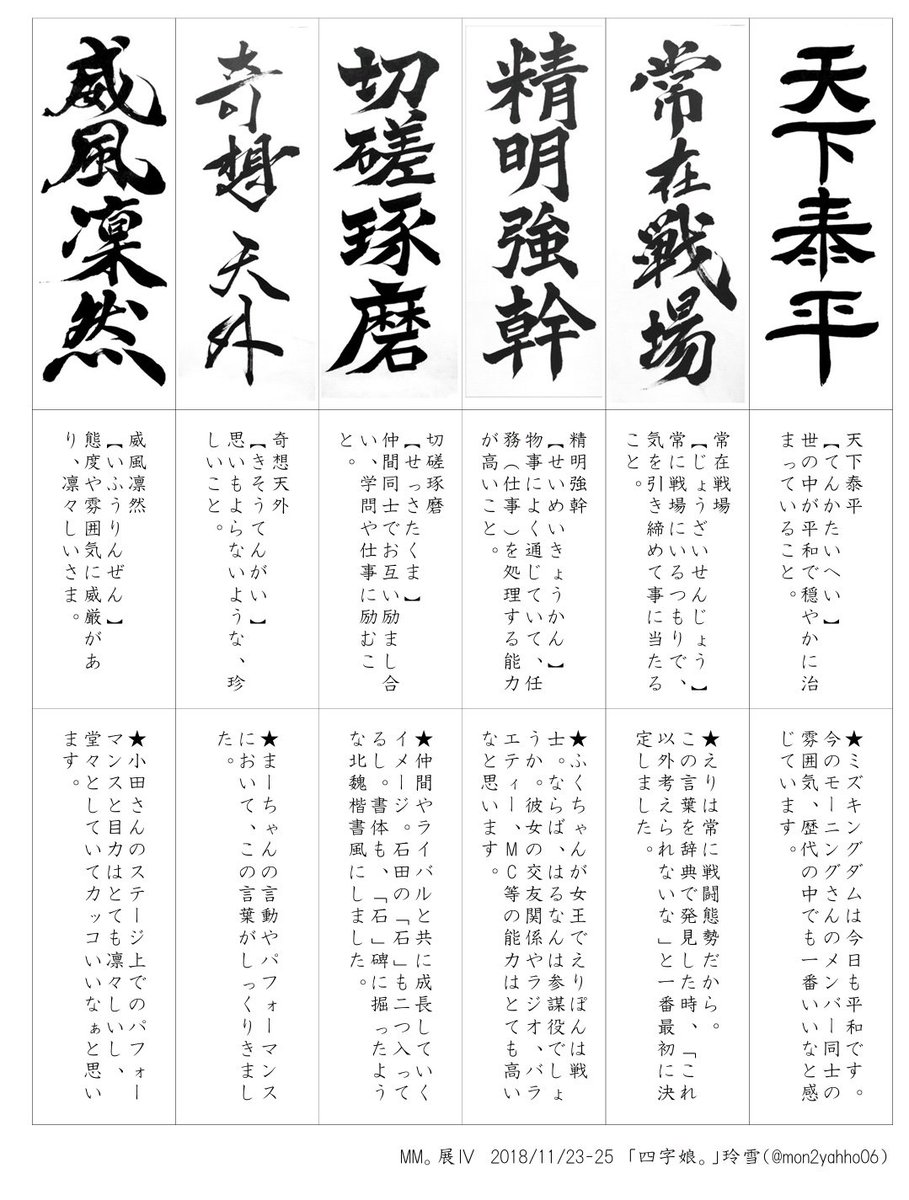 天下泰平
天下泰平
【てんかたいへい】
世の中が平和で穏やかに治
まっていること。
★ミズキングダムは今日も平和です。
今のモーニングさんのメンバー同士の
雰囲気、歴代の中でも一番いいなと感
じています。
常在戦場
常在戦場
【じょうざいせんじょう】
常に戦場にいるつもりで、
気を引き締めて事に当たる
こと。
★えりは常に戦闘態勢だから。
この言葉を辞典で発見した時、「これ
以外考えられないな」と一番最初に決
定しました。
精明強幹
精明強幹
【せいめいきょうかん】
物事によく通じていて、任
務(仕事)を処理する能力
が高いこと。
★ふくちゃんが女王でえりぽんは戦
士。ならば、はるなんは参謀役でしょ
うか。彼女の交友関係やラジオ、バラ
エティー、MC等の能力はとても高い
なと思います。
切磋琢磨
切磋琢磨
【せっさたくま】
仲間同士でお互い励まし合
い、学問や仕事に励むこ
と。
★仲間やライバルと共に成長していく
イメージ。石田の「石」も二つ入って
るし。書体も、「石」碑に掘ったよう
な北魏楷書風にしました。
奇想天外
奇想天外
【きそうてんがい】
思いもよらないような、珍
しいこと。
★まーちゃんの言動やパフォーマンス
において、この言葉がしっくりきまし
た。
威風凛然
威風凛然
【いふうりんぜん】
態度や雰囲気に威厳があ
り、凛々しいさま。
★小田さんのステージ上でのパフォー
マンスと目力はとても凛々しいし、
堂々としていてカッコいいなぁと思い
ます。
MM。展Ⅳ 2018/11/23-25 「四字娘。」玲雪(@mon2yahho06)